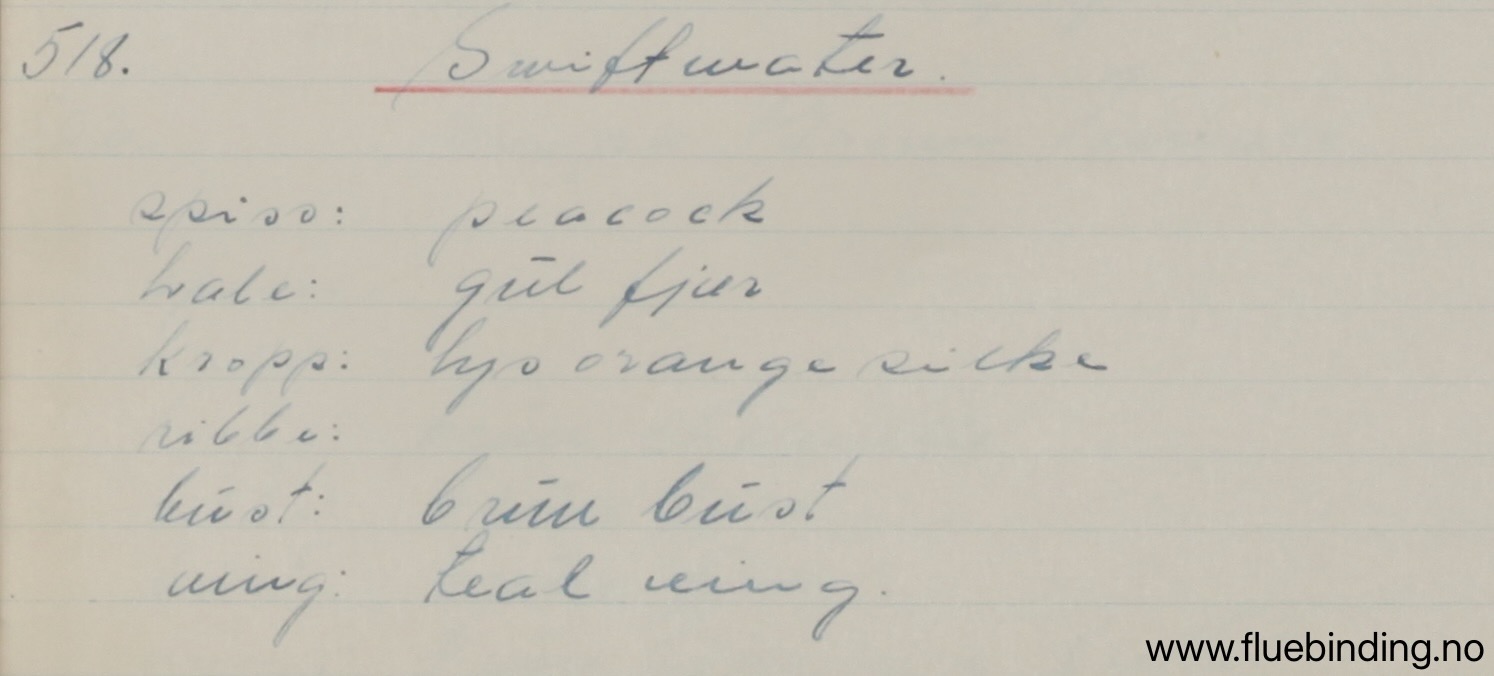 518. Swiftwater.
spiss: peacock
hale: gūl fjær
kropp: lys orange silke
ribbe:
būst: brūn būst
ving: teal ving.
www.fluebinding.no